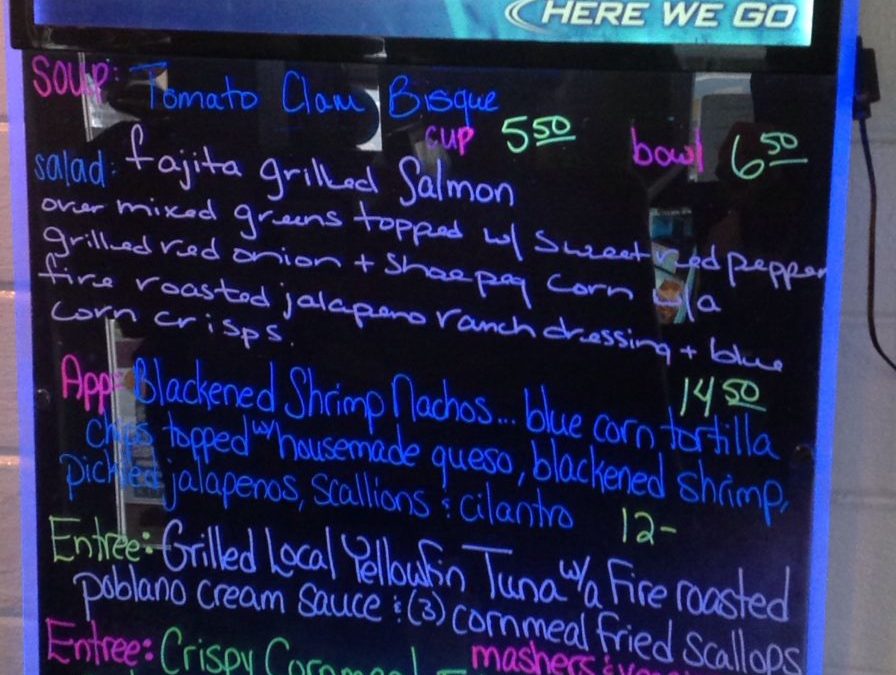 HERE WE GO
SOUP: Tomato Clam Bisque
cup 5 50 bowl 6 50
salad: fajita grilled Salmon
over mixed greens topped w/ Sweet red pepper
grilled red onion + Shoepeg corn w/a
fire roasted jalapeno ranch dressing + blue
corn crisps.
14 50
App: Blackened Shrimp Nachos... blue corn tortilla
chips topped w/ housemade queso, blackened shrimp,
pickled jalapenos, scallions & cilantro
12-
Entree: Grilled Local Yellowfin Tuna w/a Fire roasted
poblano cream sauce & (3) cornmeal fried scallops
mashers &
Entree: Crispy Cornmeal